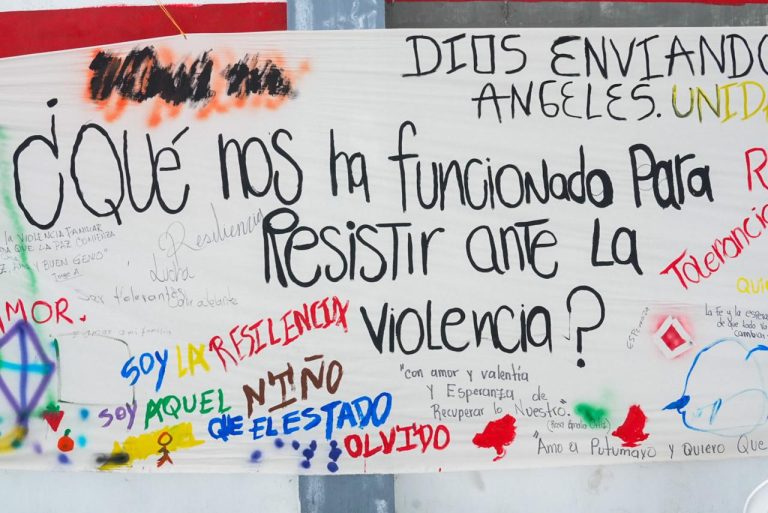 DIOS ENVIANDO
ANGELES. UNIDA
¿QUÉ nos ha funcionado PaRa
Resistir ante La
violencia?
la VIOLENCIA FAMILIAR
QUE LA PAZ COMIENZA
y BUEN GENIO"
Resiliencia
Lucha
Ser tolerantes
Tolerancia
ESPERANZA
La fe y la espera
de que todo va
cambiar
AMOR.
SOY LA RESILENCIA
SOY AQUEL NIÑO
QUE EL ESTADO
OLVIDO
"con amor y valentía
y Esperanza de
Recuperar lo Nuestro."
"Amo el Putumayo y Quiero Que